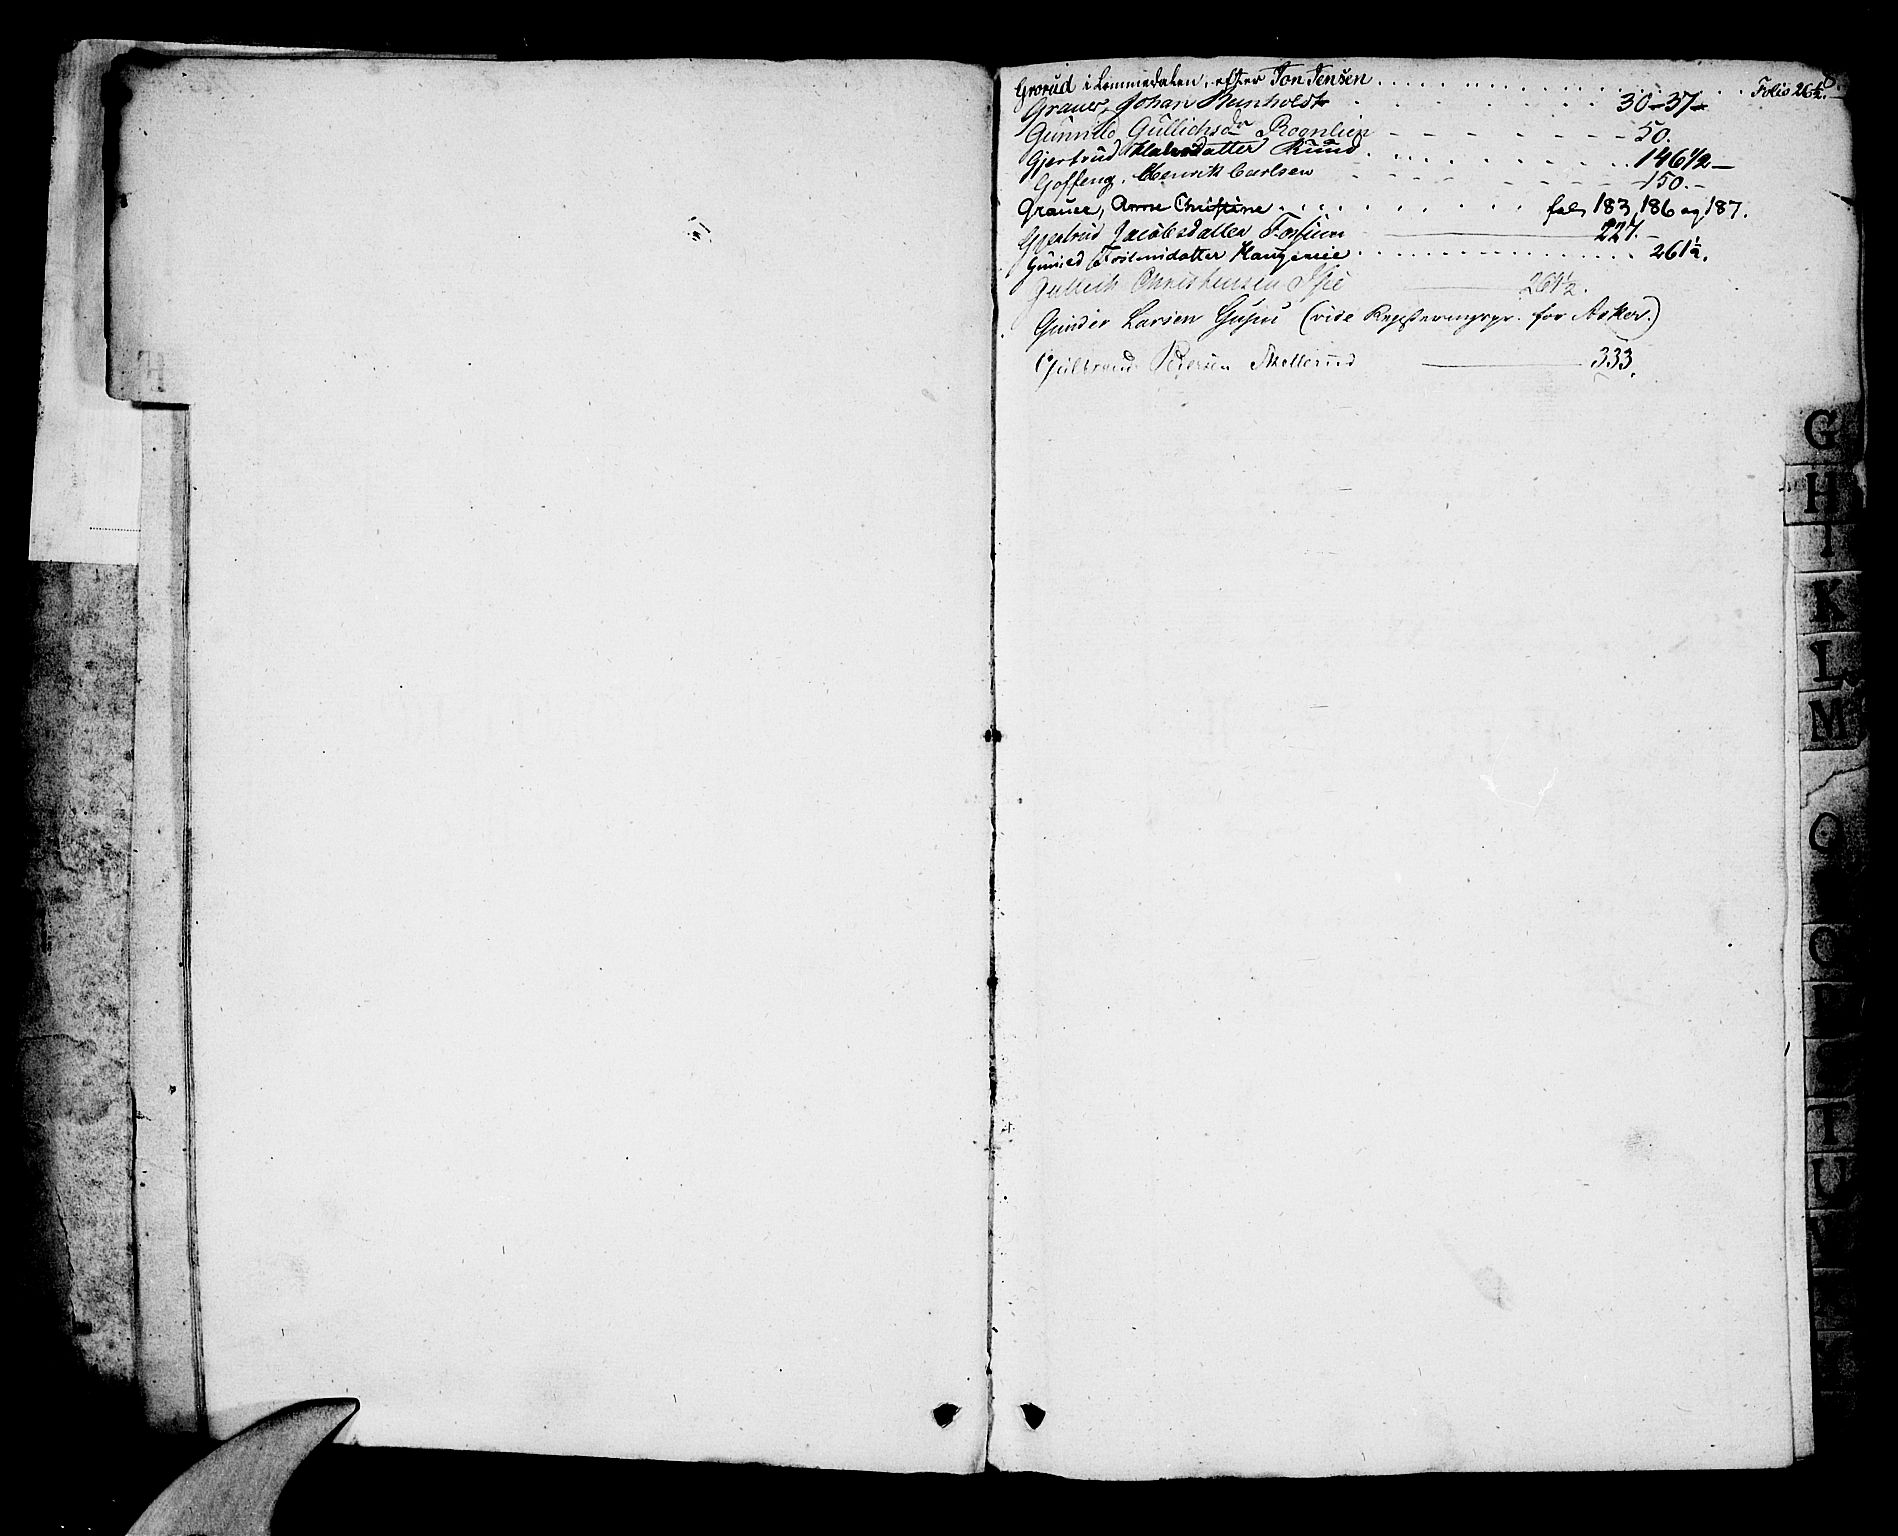 8.
Grorud i Lommedalen, efter Jon Jensen . . . . Folio 26½.
Grauer, Johan Reinholdt . . . 30-37-
Gunnild Gullichsdr Rognlien - - - - 50.
Gjertrud Halvorsdatter Ruud . . . . 146 1/2 -
Goffeng, Henrik Carlsen - - - - 150. -
Grauer, Anne Christine . . . . . fol. 183, 186 og 187.
Gjertrud Jacobsdatter Fossum 227. -
Gunild Torstensdatter Haugereie . . . . 261½.
Gullich Christensen 264½.
Gunder Larsen (vide Registreringspr. for Asker.)
Gulbrand Pedersen Skollerud 333.
H
G
H
I
K
L
M
O
T
U